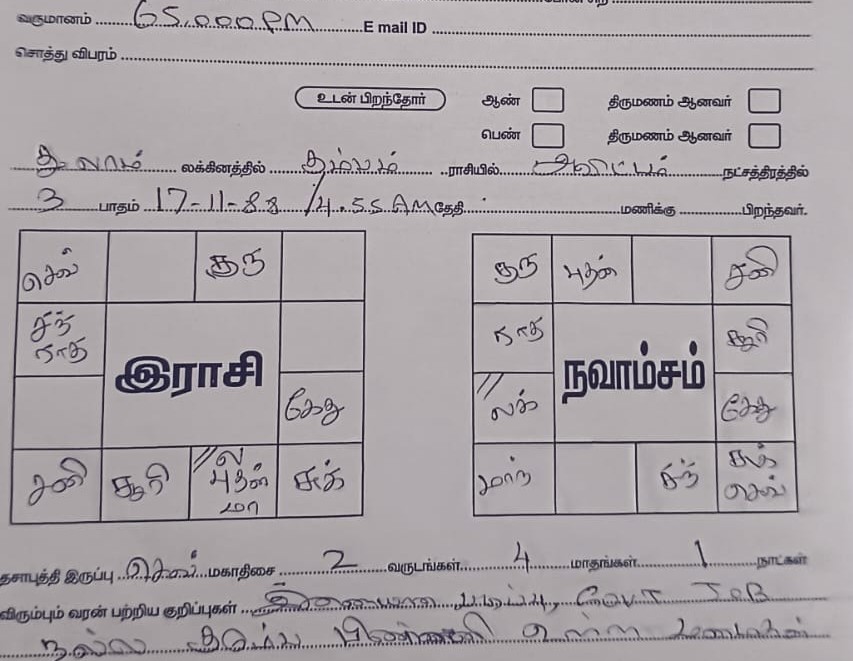 வருமானம் 65,000PM E mail ID
சொத்து விபரம்
உடன் பிறந்தோர் ஆண் திருமணம் ஆனவர்
பெண் திருமணம் ஆனவர்
துலாம் லக்கினத்தில் கும்பம் ராசியில் அவிட்டம் நட்சத்திரத்தில்
3 பாதம் 17-11-88 / 4.55 AM தேதி மணிக்கு பிறந்தவர்.
செவ் குரு
சந் ராகு
இராசி
கேது
சனி சூரி ல புதன் மா சுக்
குரு புதன் சனி
ராகு சூரி
நவாம்சம்
லக் கேது
மாந் சந் சுக் செவ்
தசாபுத்தி இருப்பு செவ் மகாதிசை 2 வருடங்கள் 4 மாதங்கள் 1 நாட்கள்
விரும்பும் வரன் பற்றிய குறிப்புகள் இணையான படிப்பு, GOVT JOB
நல்ல குடும்ப பிண்ணனி உள்ள மணமகன்